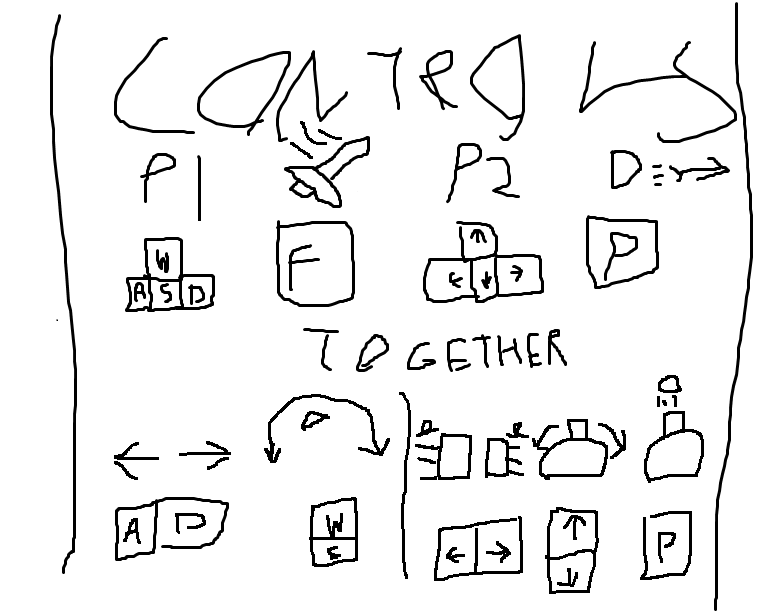 CONTROLS
P1 P2
W
A S D F ↑ ← ↓ → P
TOGETHER
A D W S ← → ↑ ↓ P